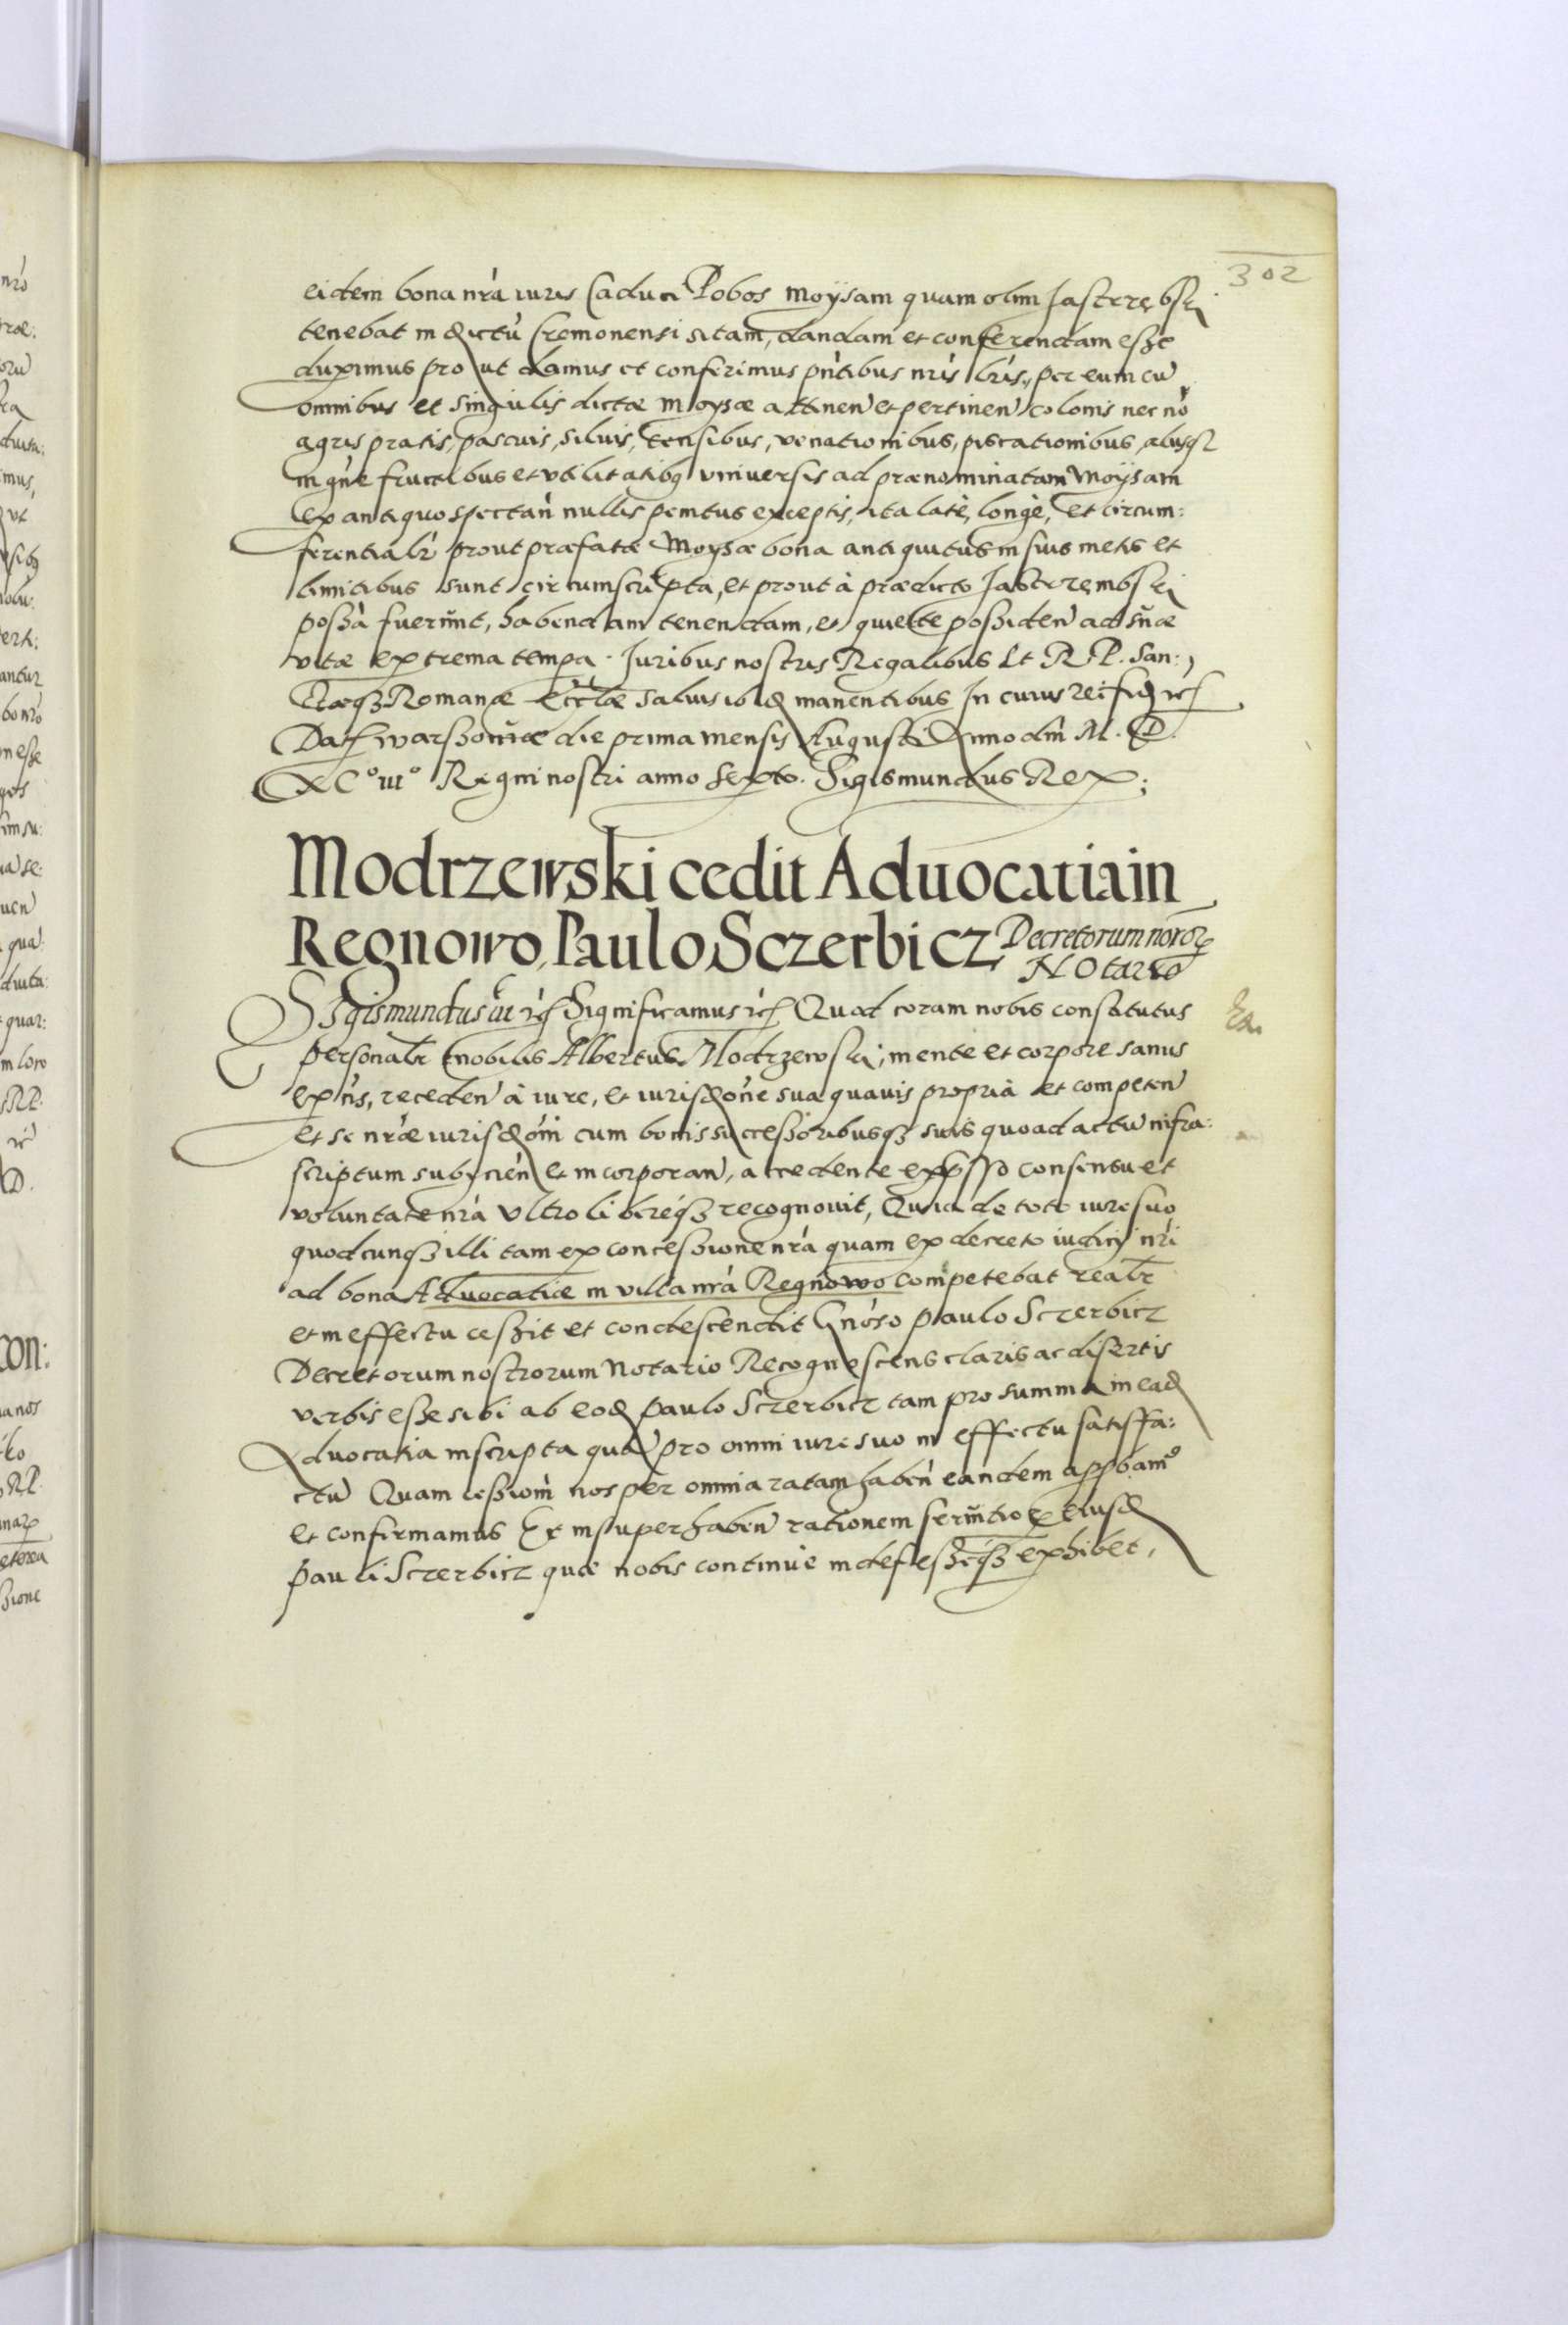 302
eidem bona nrā iuris Caduci Pobos Moysam quam olim Jastrzębski
tenebat in dictū Cremonensi sitam, dandam et conferendam eſse
duximus prout damus et conferimus pn̄tibus nrīs lrīs, per eum cū
omnibus et singulis dictæ Moysæ attinen̄ et pertinen̄ colonis nec nō
agris pratis, pascuis, siluis, censibus, venationibus, piscationibus, alijsq3
in gn̄e fructibus et vtilitatibq vniuersis ad prænominatam Moysam
ex antiquo spectan̄ nullis penitus exceptis, ita latè, longè, et circum:
ferentialr̄ prout præfatæ Moysæ bona antiquitus in suis metis et
limitibus sunt circumscripta, et prout à prædicto Jastrzembski
poſsa fuerūnt, habendam tenendam, et quiete poſsiden̄ ad suæ
vitæ extrema tempa. Juribus nostris Regalibus Et R P. San:
ctæq3 Romanæ Eccl̄æ saluis ibid manentibus In cuius rei fid etc
Dat Warszouiæ die prima mensis Augusti Anno dn̄i M. D.
XC° iii° Regni nostri anno sexto. Sigismundus Rex;
Modrzewski cedit Aduocatia in
Regnowo, Paulo Sczerbicz Decretorum nororꝝ
Notario
Sigismundus iii etc Significamus etc Quod coram nobis constitutus
personalr̄ nobilis Albertus Modrzewski, mente et corpore sanus
exn̄s, receden̄ à iure, et iurisdōne sua quauis propria et competen̄
et se nrǣ iurisdōni cum bonis succeſsoribusq3 suis quoad actū infra:
scriptum subijcien̄ et incorporan̄, accedente expſso consensu et
voluntate nrā Vltro libereq3 recognouit, Quia de toto iure suo
quodcunq3 illi tam ex conceſsione nrā quam ex decreto iudicij nrī
ad bona Aduocatiæ in villa nrā Regnowo competebat realr̄
et in effectu ceſsit et condescendit Gnōso Paulo Sczerbicz
Decretorum nostrorum Notario Recognoscens claris ac disertis
verbis eſse sibi ab eod Paulo Sczerbicz tam pro summa in ead
Aduocatia inscripta quā pro omni iure suo in effectu satisfa:
ctū Quam ceſsionē nos per omnia ratam haben̄ eandem appbam9
et confirmamus Et insuper haben̄ rationem seruitioꝝ eiusd
Pauli Sczerbicz quæ nobis continuè indefeſseq3 exhibet,